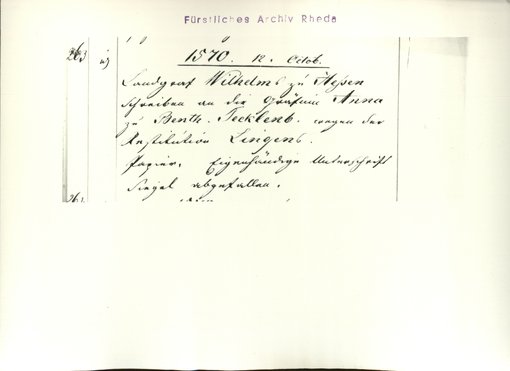 Fürstliches Archiv Rheda
263
1570. 12. Octob.
Landgraf Wilhelms zu Hessen
Schreiben an die Gräfinn Anna
zu Benth. Tecklenb. wegen der
Restitution Lingens.
Papier. Eigenhändige Unterschrift
Siegel abgefallen.